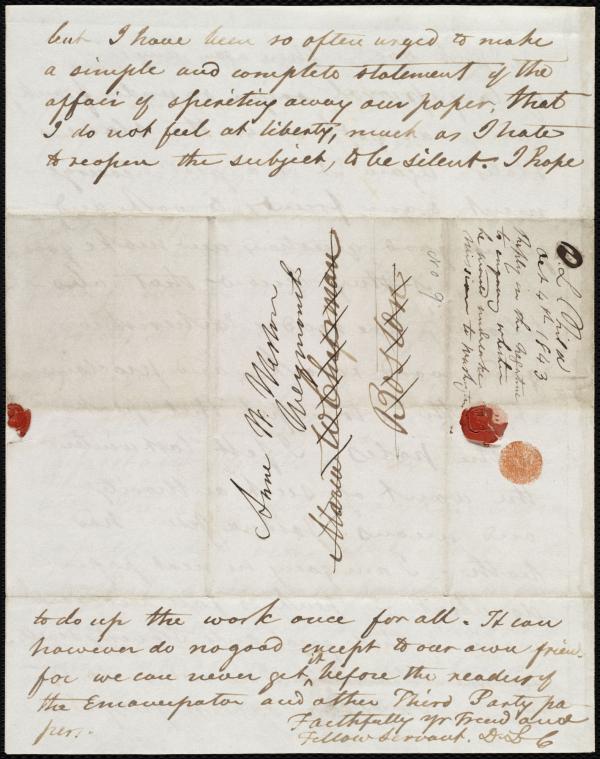 but I have been so often urged to make
a simple and complete statement of the
affair of spiriting away our paper, that
I do not feel at liberty, much as I hate
to reopen the subject, to be silent. I hope
Anne W. Weston
Weymouth
Maria W. Chapman
Boston
No 9
D L Child
Oct 4th 1843
Reply in the negative
to enquiry whether
he would undertake
mission to Washington
to do up the work once for all. It can
however do no good except to our own frien
for we can never get it before the readers of
the Emancipator and other Third Party pa
pers.
Faithfully yr Friend and
Fellow servant. D L C